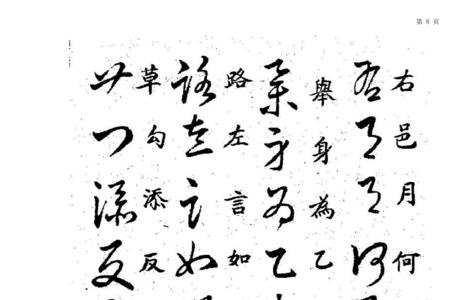 第 8 页
右邑月何
舉身為乙
路左言如
草勾添反